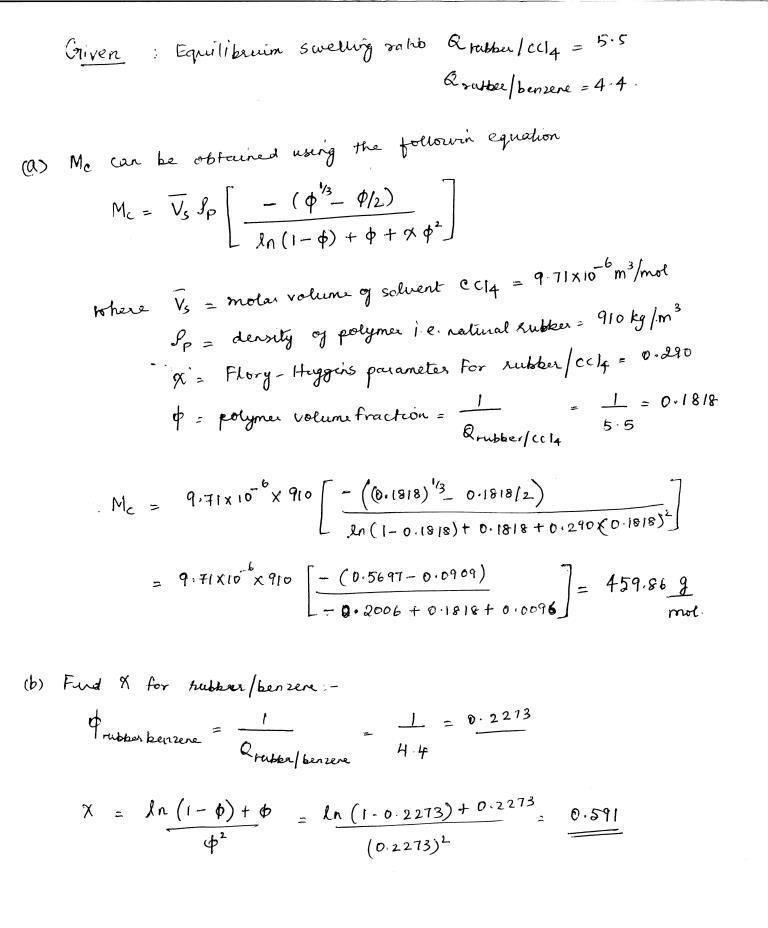 Given : Equilibruim swelling ratio Q rubber/ccl4 = 5.5
Q rubber/benzene = 4.4.
(a) Mc can be obtained using the followin equation
Mc = V̄s ρp [ - (φ^1/3 - φ/2) / ln(1-φ) + φ + x φ² ]
where V̄s = molar volume of solvent ccl4 = 9.71x10^-6 m³/mol
ρp = density of polymer i.e. natural rubber = 910 kg/m³
x = Flory-Huggins parameter For rubber/ccl4 = 0.290
φ = polymer volume fraction = 1 / Q rubber/ccl4 = 1 / 5.5 = 0.1818
. Mc = 9.71x10^-6 x 910 [ - ((0.1818)^1/3 - 0.1818/2) / ln(1-0.1818) + 0.1818 + 0.290x(0.1818)² ]
= 9.71x10^-6 x 910 [ - (0.5697-0.0909) / -0.2006 + 0.1818 + 0.0096 ] = 459.86 g / mol.
(b) Find x for rubber/benzene :-
φ rubber benzene = 1 / Q rubber/benzene = 1 / 4.4 = 0.2273
x = ln(1-φ) + φ / φ² = ln(1-0.2273) + 0.2273 / (0.2273)² = 0.591